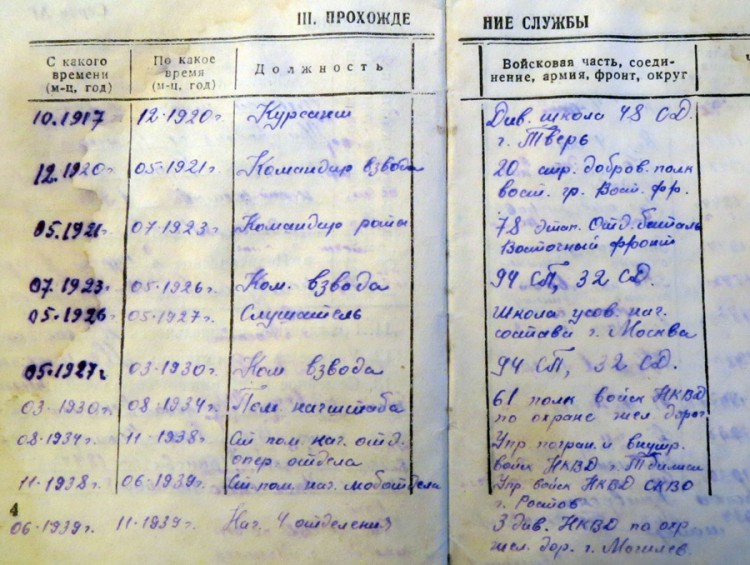 III. ПРОХОЖДЕ
НИЕ СЛУЖБЫ
С какого времени (м-ц, год)
По какое время (м-ц, год)
Должность
Войсковая часть, соеди-
нение, армия, фронт, округ
10.1917 12.1920г. Курсант Див. школа 48 СД.
г. Тверь
12.1920 05.1921г. Командир взвода 20 стр. добров. полк
вост. гр. Вост. фр.
05.1921г. 07.1923г. Командир роты 78 этап. Отд. баталь
Восточный фронт
07.1923г. 05.1926г. Ком. взвода 94 СП, 32 СД.
05.1926 05.1927г. Слушатель Школа усов. нач.
состава г. Москва
05.1927г. 03.1930г. Ком взвода 94 СП, 32 СД.
03.1930г. 08.1934г. Пом. начштаба 61 полк войск НКВД
по охране жел. дорог
08.1934г. 11.1938г. Ст пом. нач. отд. Упр погран. и внутр.
опер отдела войск НКВД г. Тбилиси
11.1938г. 06.1939г. Ст пом. нач. моботдела Упр. войск НКВД СКВО
г. Ростов
4
06.1939г. 11.1939г. Нач. 4 отделения 3 див. НКВД по охр
жел. дор. г. Могилев.